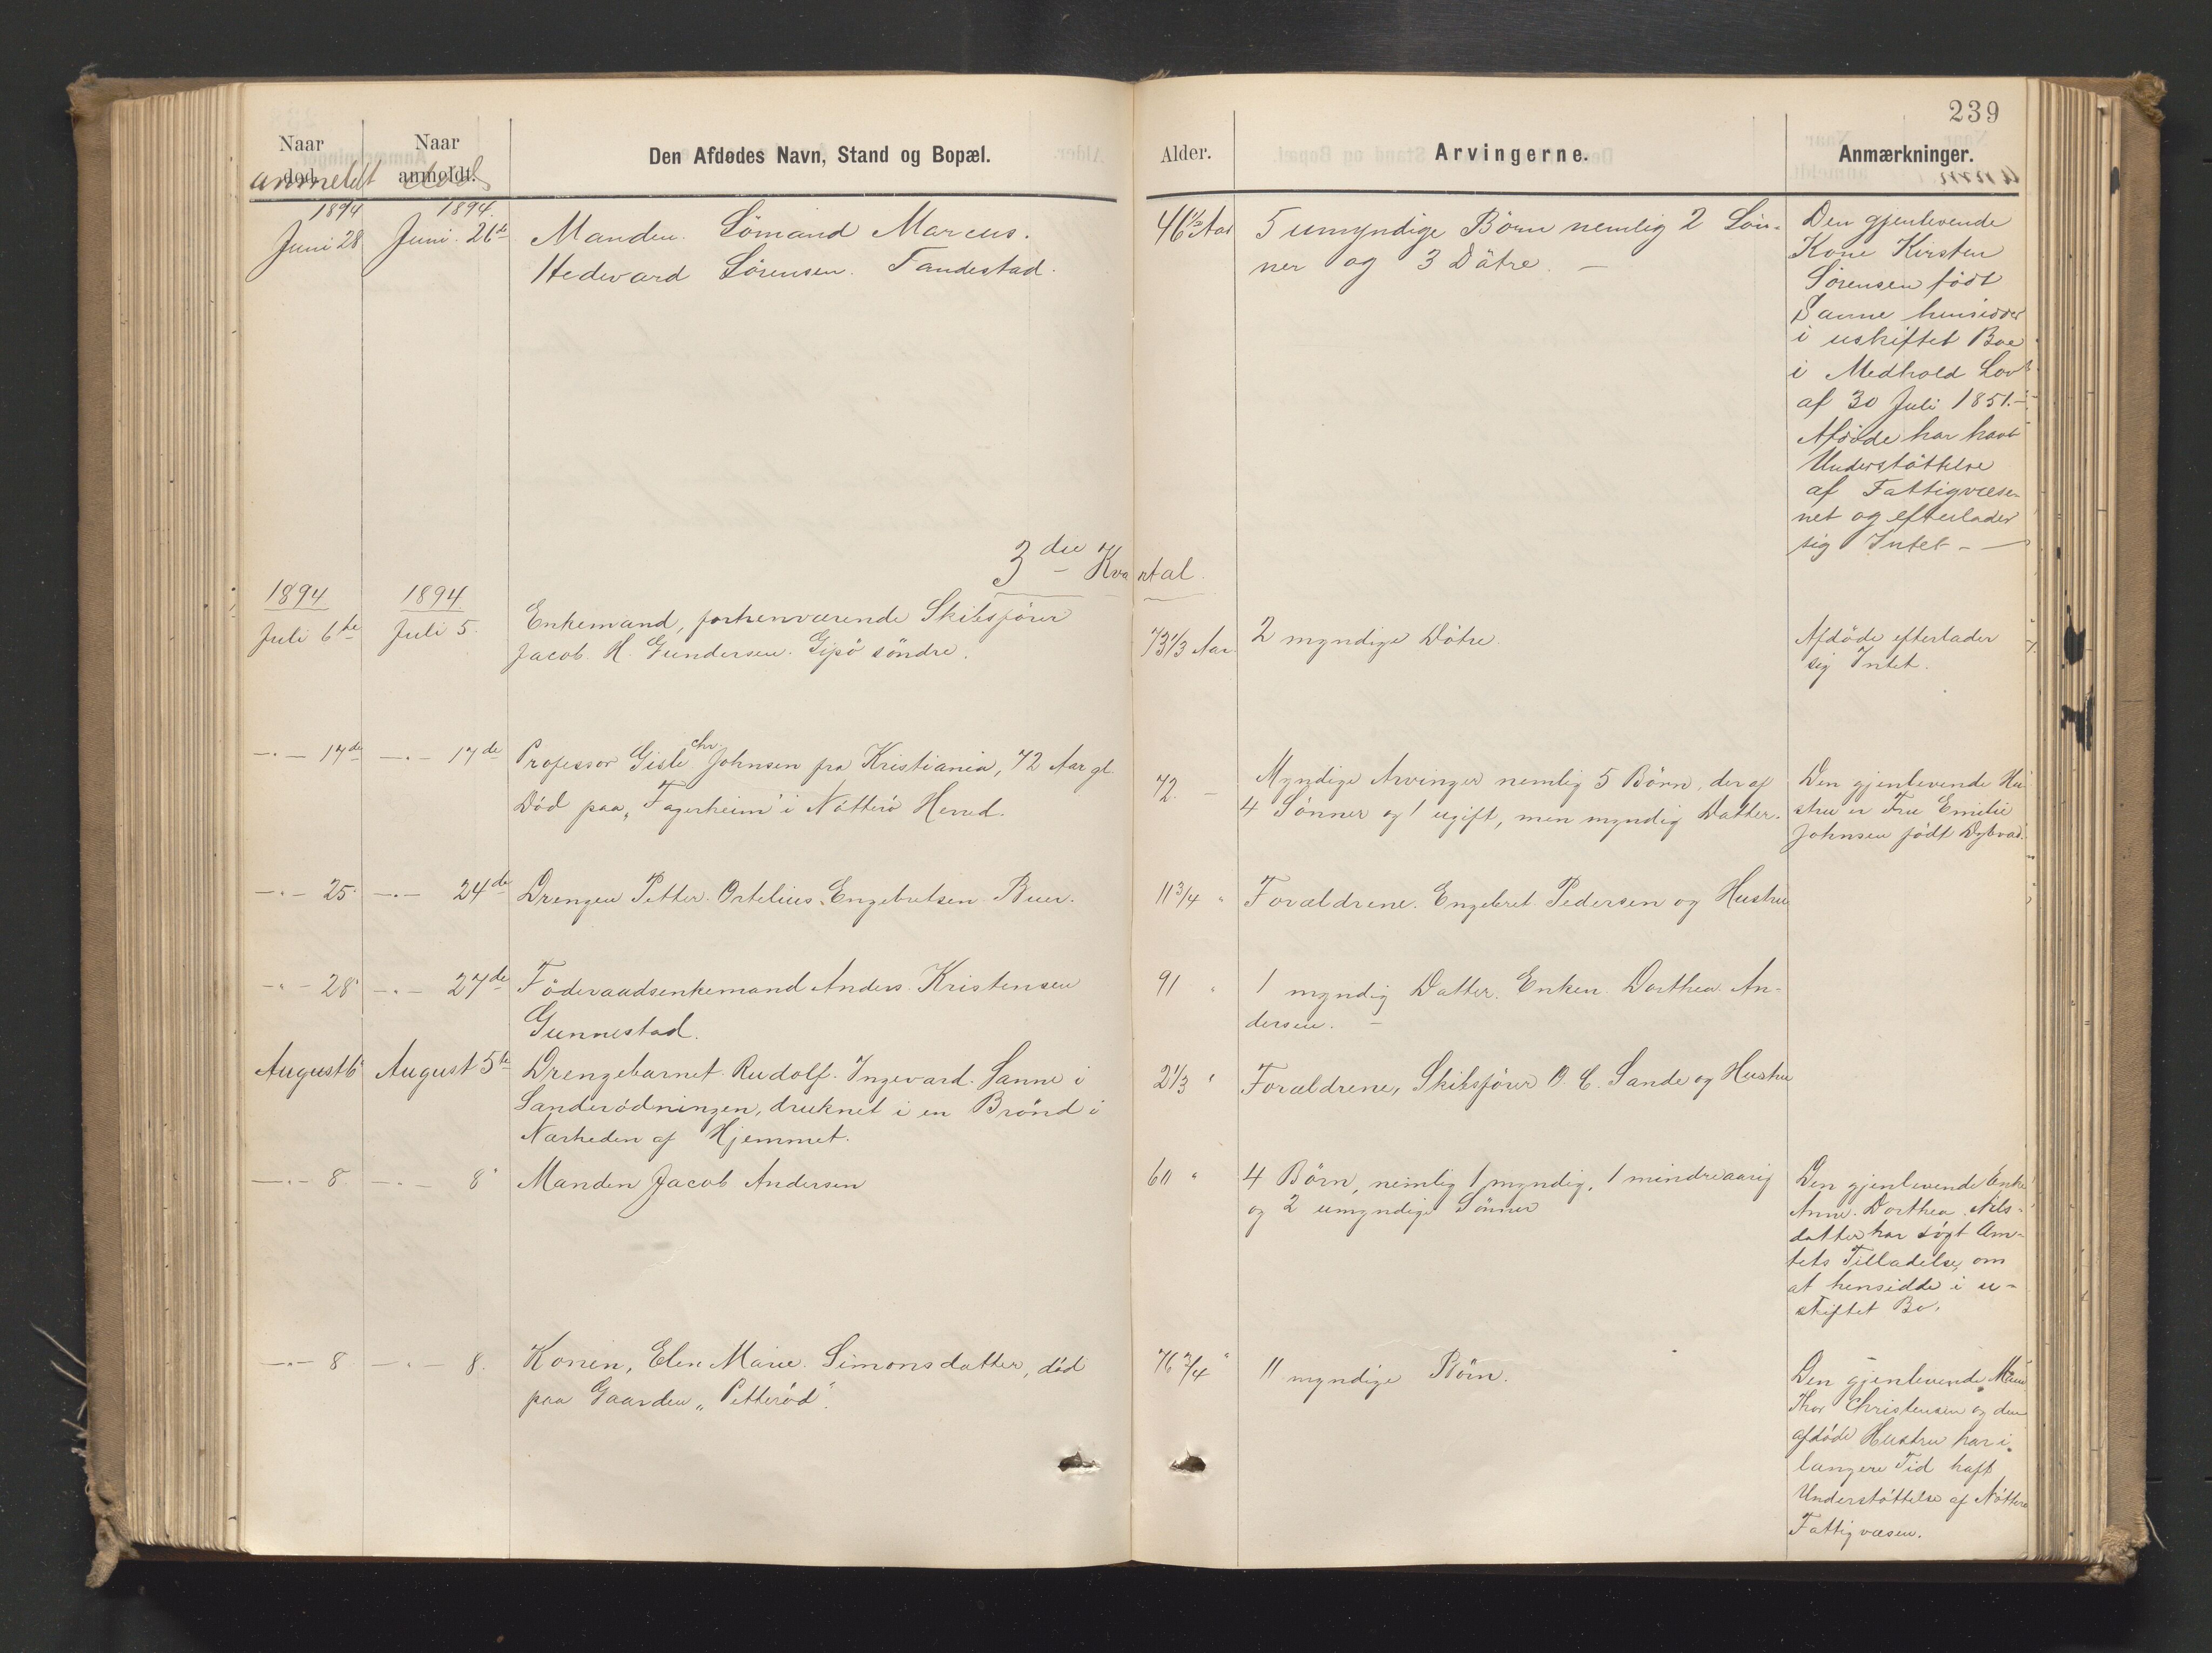 239
Naar død. anmeldt
Naar anmeldt. død
Den Afdødes Navn, Stand og Bopæl.
Alder.
Arvingerne.
Anmærkninger.
1894 Juni 28
1894. Juni. 26de
Manden. Sömand Marcus.
Hedevard Sörensen. Tandestad.
46 1/2 Aar
5 umyndige Börn nemlig 2 Sön-
ner og 3 Dötre. –
Den gjenlevende
Kone Kirsten
Sörensen födt
Sanne hensidder
i uskiftet Boe
i Medhold Lov
af 30 Juli 1851.–
Afdöde har havt
Understöttelse
af Fattigvæse-
net og efterlader
sig Intet –
3die Kvartal.
1894
Juli 6te
1894
Juli 5.
Enkemand, forhenværende Skibsförer
Jacob H. Gundersen. Gipö söndre.
73 1/3 Aar.
2 myndige Dötre.
Afdöde efterlader
sig Intet.
–.– 17de
–.– 17de
Professor Gisle Chr Johnsen fra Kristiania, 72 Aar gl.
Död paa „Fagerheim" i Nötterö Herred.
72. –
Myndige Arvinger nemlig 5 Börn, deraf
4 Sönner og 1 ugift, men myndig Datter.
Den gjenlevende Hu-
stru er Fru Emilie
Johnsen födt Dybvad.
–.– 25.
–.– 24de
Drengen Petter. Ortelius. Engebretsen Buer.
11 3/4 "
Forældrene. Engebret Pedersen og Hustru
–"– 28.
–.– 27de
Föderaadsenkemand Anders Kristensen
Gunnestad.
91 "
1 myndig Datter. Enken. Dorthea An-
dersen. –
August 6.
August 5te
Drengebarnet Rudolf. Ingevard. Sanne i
Sanderödningen, druknet i en Brönd i
Nærheden af Hjemmet.
2 1/3 "
Forældrene, Skibsförer O. C. Sande og Hustru
–.– 8.
–.– 8.
Manden Jacob Andersen
60 "
4 Börn, nemlig 1 myndig, 1 mindreaarig
og 2 umyndige Sönner
Den gjenlevende Enke
Anne. Dorthea. Nils-
datter har sögt Am-
tets Tilladelse, om
at hensidde i u-
skiftet Bo.
–.– 8
–.– 8.
Konen, Elen Marie. Simonsdatter, död
paa Gaarden „Petteröd".
76 3/4 "
11 myndige Börn.
Den gjenlevende Man
Thor Christensen og den
afdöde Hustru har i
længere Tid haft
Understöttelse af Nötterö
Fattigvæsen.